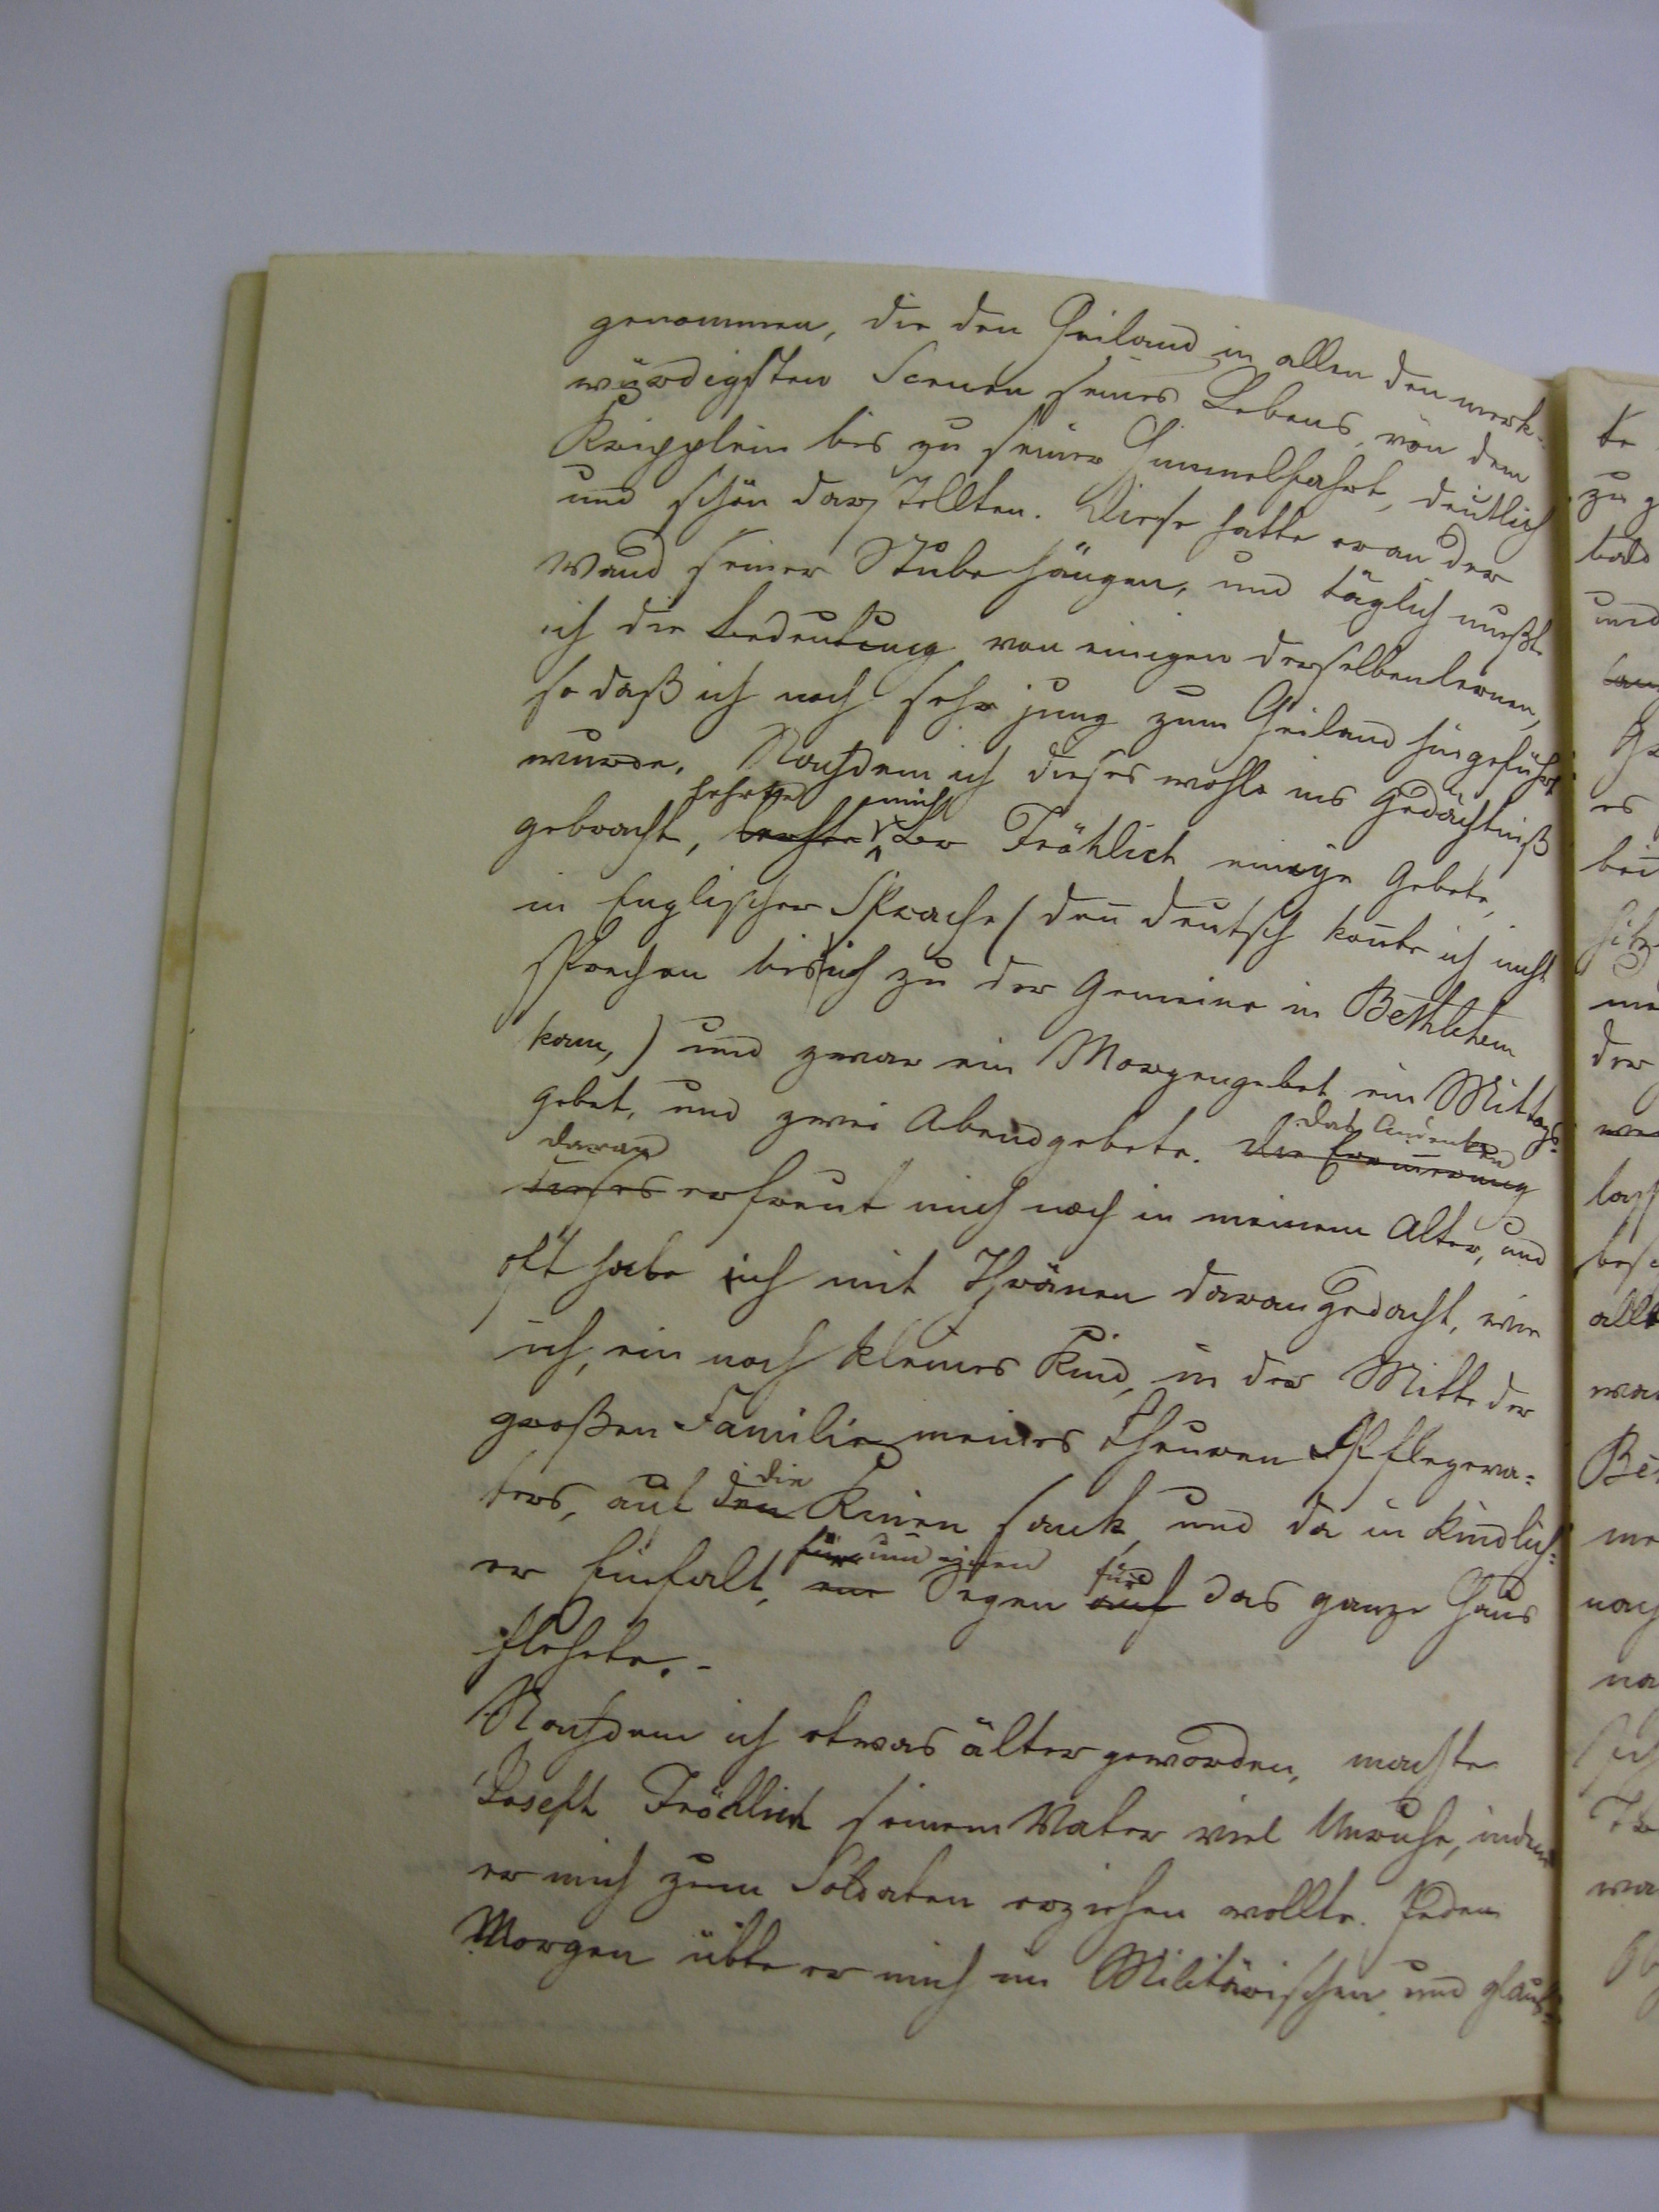 genommen, die den Heiland in allen den merk-
würdigsten Scenen seines Lebens, von dem
Kripplein bis zu seiner Himmelfahrt, deutlich
und schön darstellten. Diese hatte er an der
Wand seiner Stube hängen, und täglich mußte
ich die Bedeutung von einigen derselben lernen,
so daß ich noch sehr jung zum Heiland hingeführt
wurde. Nachdem ich dieses wohl ins Gedächtniß
lehrte mich
gebracht, Br Fröhlich einige Gebete,
in Englischer Sprache (den̄ deutsch kon̄te ich nicht
sprechen bis ich zu der Gemeine in Bethlehem
kam,) und zwar ein Morgengebet ein Mittags-
gebet, und zwei Abendgebete. die Erinnerung
das Andenken
daran
dieses erfreut mich noch in meinem Alter, und
oft habe ich mit Thränen daran gedacht, wie
ich, ein noch kleines Kind, in der Mitte der
großen Familie meines theuren Pflegeva=
die
ters, auf den Knien sank, und da in kindlich=
um einen für
er Einfalt, Segen auf das ganze Haus
flehete. -
Nachdem ich etwas älter geworden, machte
Joseph Fröhlich seinem Vater viel Unruhe, indem
er mich zum Soldaten erziehen wollte. Jeden
Morgen übte er mich im Militärischen und glaub=
te
zu g
bald
und
es
bei
me
der
we
lass
besc
alle
war
Be
me
nach
na
wa